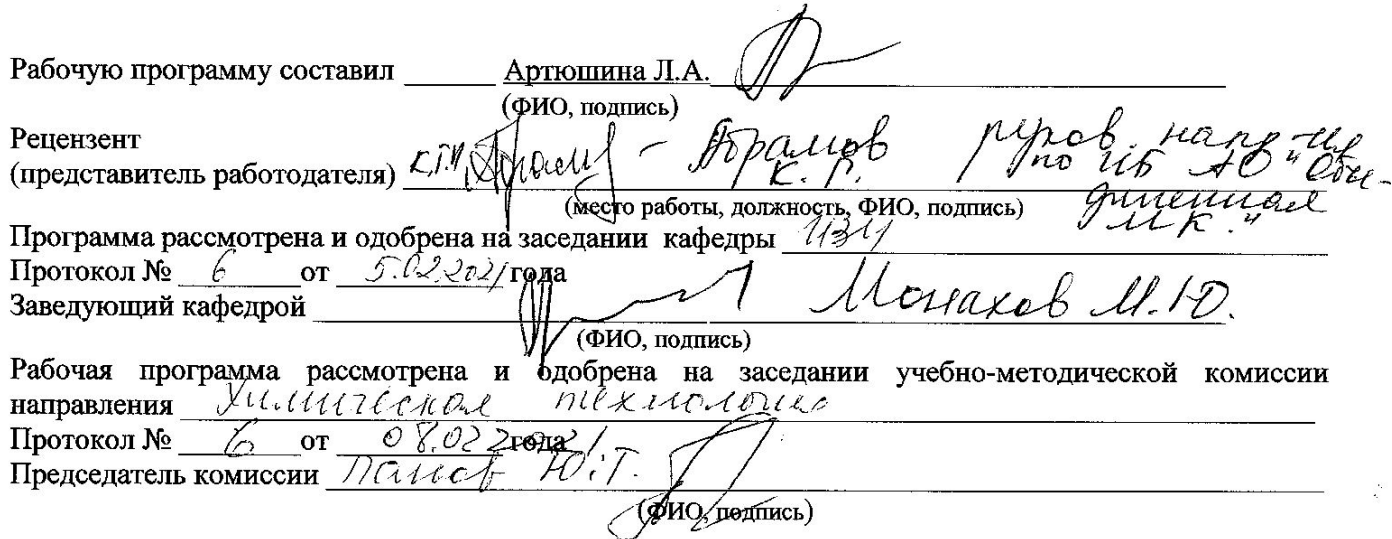 Рабочую программу составил Артюшина Л.А.
(ФИО, подпись)
Рецензент
(представитель работодателя) к.т.н. Абрамов К. Г. руков. напр-ия по ИБ АО "Объединенная МК."
(место работы, должность, ФИО, подпись)
Программа рассмотрена и одобрена на заседании кафедры ИЗИ
Протокол № 6 от 5.02.2021 года
Заведующий кафедрой Монахов М.Ю.
(ФИО, подпись)
Рабочая программа рассмотрена и одобрена на заседании учебно-методической комиссии
направления Химическая технология
Протокол № 6 от 08.02 2021 года
Председатель комиссии Панов Ю.Т.
(ФИО, подпись)